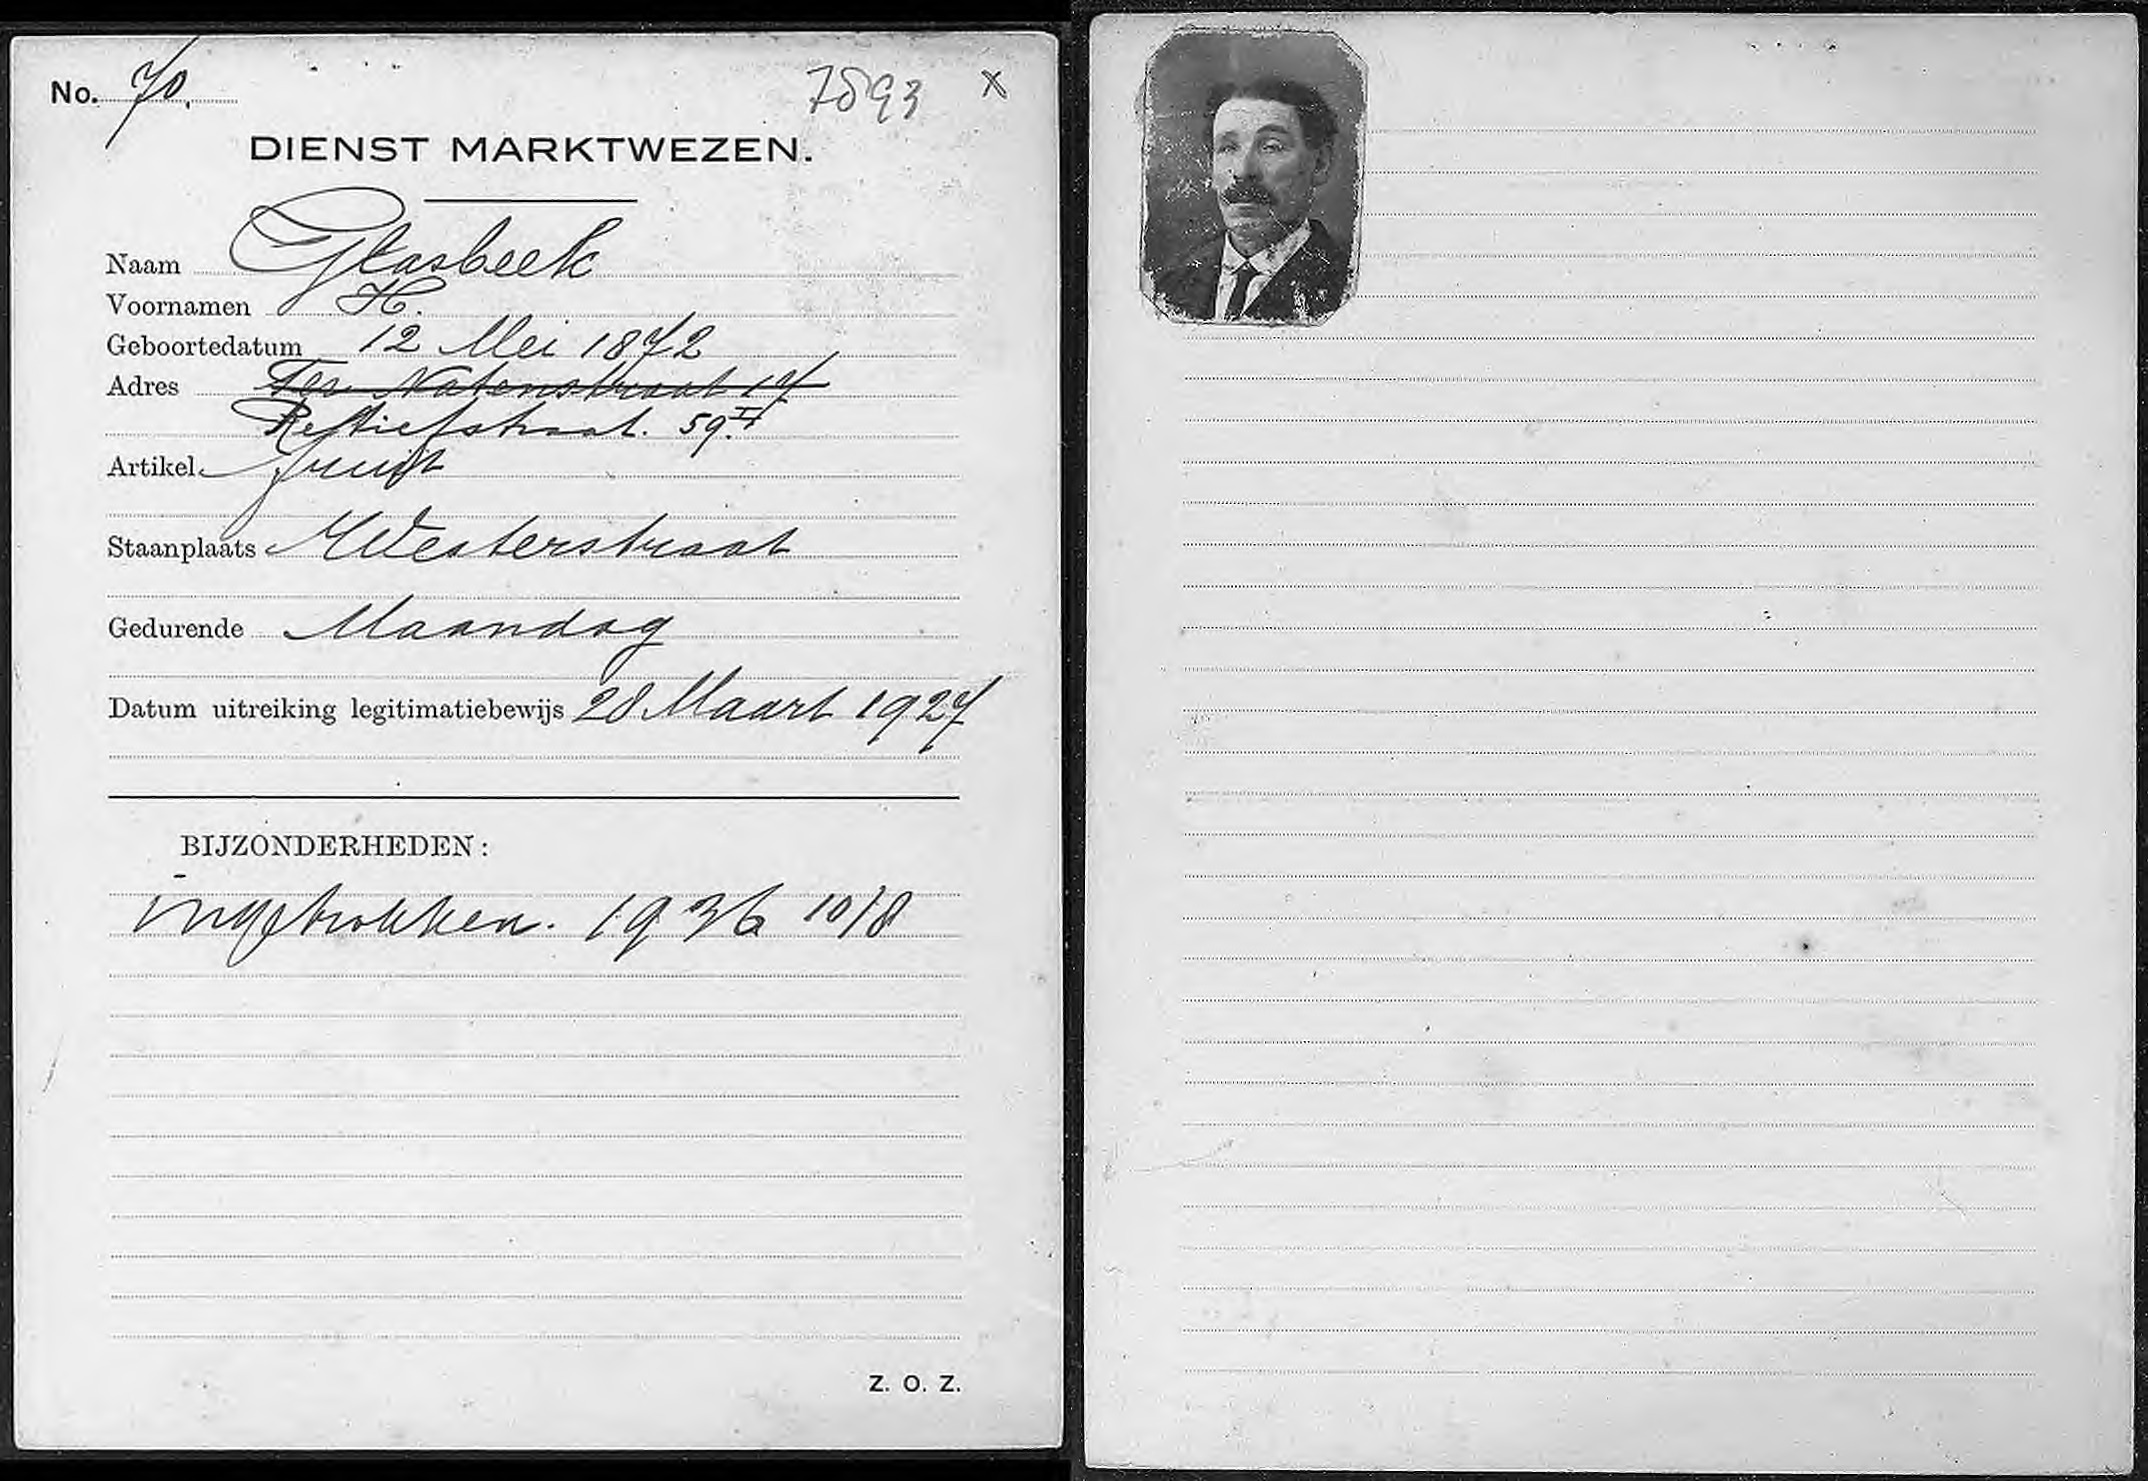 No. 70.
7893 X
DIENST MARKTWEZEN.
Naam Glasbeek
Voornamen H.
Geboortedatum 12 Mei 1872
Adres straat 17
Retiefstraat. 59 II
Artikel fruit
Staanplaats Westerstraat
Gedurende Maandag
Datum uitreiking legitimatiebewijs 28 Maart 1927
BIJZONDERHEDEN:
ingetrokken. 1936 10/8
Z. O. Z.